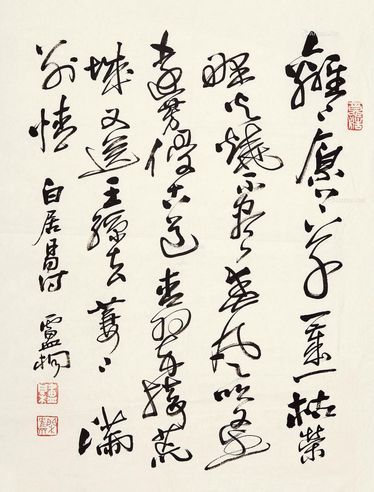 離〻原上草一歲一枯榮
野火燒不盡春風吹又生
遠芳侵古道晴翠接荒
城又送王孫去萋〻滿
別情 白居易詩 盧桐